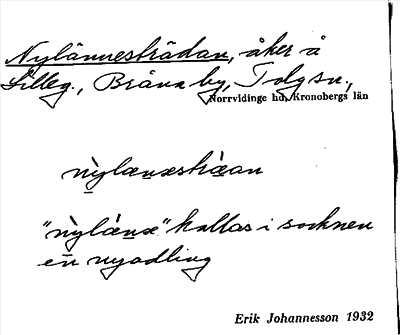 Nylännesträdan, åker å
Lilleg., Bråna by, Tolg sn.,
Norrvidinge hd, Kronobergs län
nỳlænæstræ̀an
"nỳlǽnæ" kallas i socknen
en nyodling
Erik Johannesson 1932